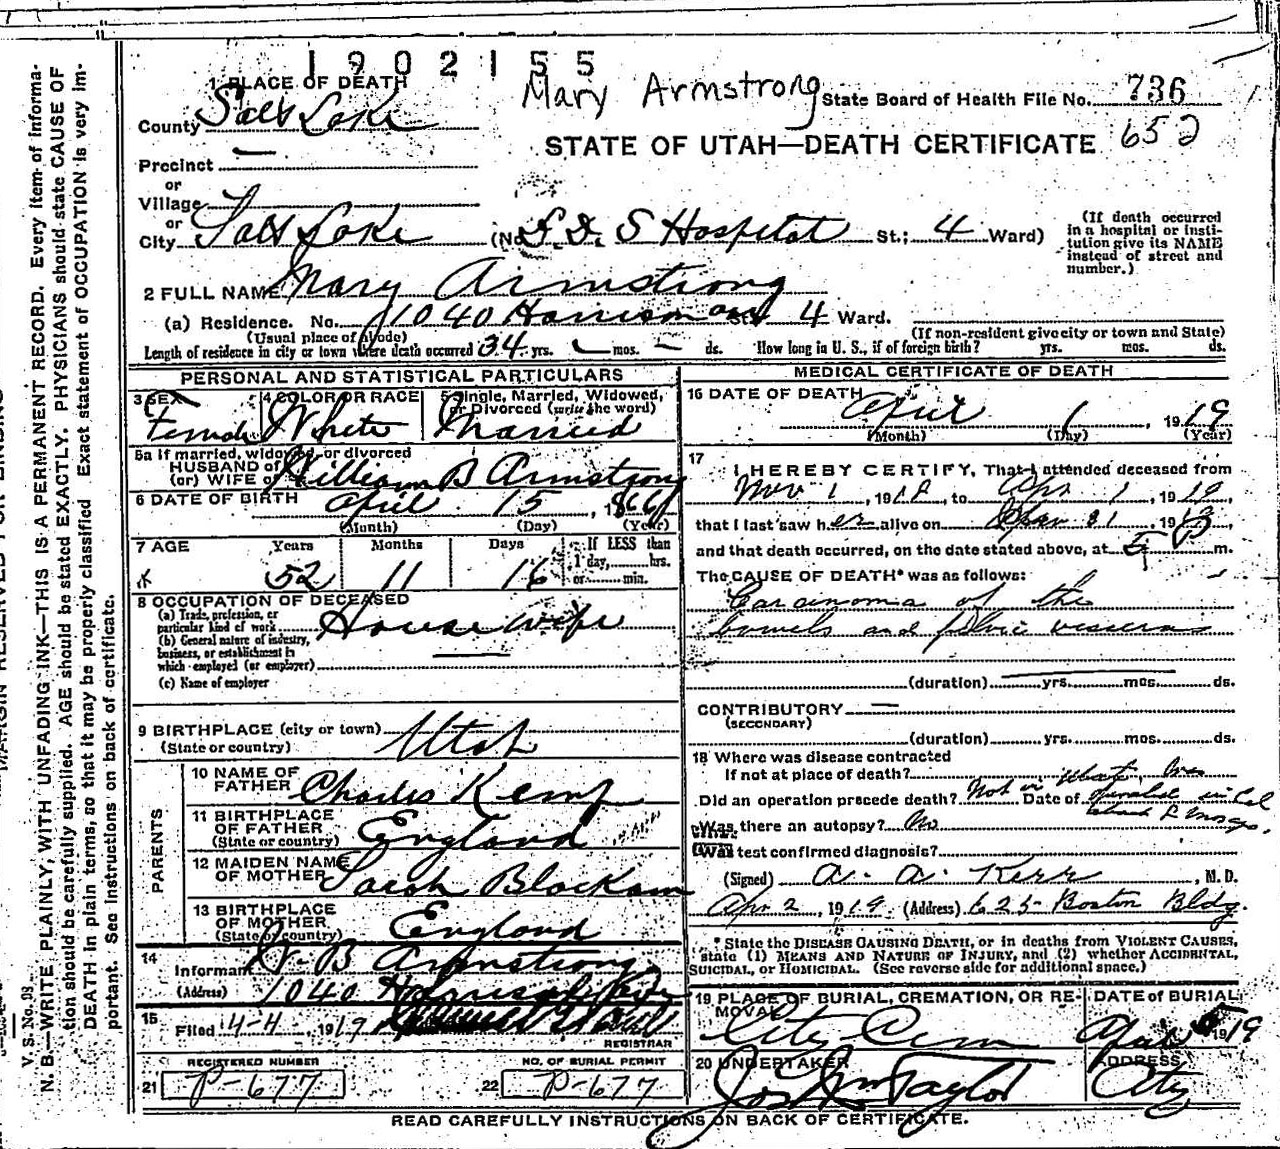 1902155
Mary Armstrong
State Board of Health File No. 736
652
STATE OF UTAH—DEATH CERTIFICATE
1 PLACE OF DEATH
County Salt Lake
Precinct —
or
Village
or
City Salt Lake (No. L. D. S Hospital St.; 4 Ward)
(If death occurred in a hospital or institution give its NAME instead of street and number.)
2 FULL NAME Mary Armstrong
(a) Residence. No. 1040 Harrison ave St. 4 Ward.
(Usual place of abode) (If non-resident give city or town and State)
Length of residence in city or town where death occurred 34 yrs. — mos. — ds. How long in U. S., if of foreign birth? yrs. mos. ds.
PERSONAL AND STATISTICAL PARTICULARS
3 SEX Female
4 COLOR OR RACE White
5 Single, Married, Widowed, or Divorced (write the word) Married
5a If married, widowed, or divorced
HUSBAND of
(or) WIFE of William B Armstrong
6 DATE OF BIRTH April 15, 1866
(Month) (Day) (Year)
7 AGE Years Months Days If LESS than
52 11 16 1 day,......hrs.
or......min.
8 OCCUPATION OF DECEASED
(a) Trade, profession, or particular kind of work House wife
(b) General nature of industry, business, or establishment in which employed (or employer) —
(c) Name of employer
9 BIRTHPLACE (city or town)
(State or country) Utah
PARENTS
10 NAME OF FATHER Charles Kemp
11 BIRTHPLACE OF FATHER (State or country) England
12 MAIDEN NAME OF MOTHER Sarah Blackam
13 BIRTHPLACE OF MOTHER (State or country) England
14 Informant W. B Armstrong
(Address) 1040 Harrison Ave
15 Filed 4-4, 1919
REGISTRAR
REGISTERED NUMBER
21 P-677
NO. OF BURIAL PERMIT
22 P-677
MEDICAL CERTIFICATE OF DEATH
16 DATE OF DEATH April 1, 1919
(Month) (Day) (Year)
17 I HEREBY CERTIFY, That I attended deceased from
Nov 1, 1918, to Apr 1, 1919,
that I last saw her alive on Mar 31, 1919,
and that death occurred, on the date stated above, at 5 P m.
The CAUSE OF DEATH* was as follows:
Carcinoma of the
bowels and pelvic
(duration) yrs. mos. ds.
CONTRIBUTORY —
(SECONDARY)
(duration) yrs. mos. ds.
18 Where was disease contracted
If not at place of death?
Did an operation precede death? Not in Utah. Date of
Was there an autopsy? No
What test confirmed diagnosis?
(Signed) A. A. Kerr, M. D.
Apr 2, 1919 (Address) 625 Boston Bldg.
* State the DISEASE CAUSING DEATH, or in deaths from VIOLENT CAUSES, state (1) MEANS AND NATURE OF INJURY, and (2) whether ACCIDENTAL, SUICIDAL, or HOMICIDAL. (See reverse side for additional space.)
19 PLACE OF BURIAL, CREMATION, OR REMOVAL City Cem
DATE of BURIAL April 5 1919
20 UNDERTAKER Jos Wm Taylor
ADDRESS City
READ CAREFULLY INSTRUCTIONS ON BACK OF CERTIFICATE.
V. S. No. 98
N. B.—WRITE PLAINLY, WITH UNFADING INK—THIS IS A PERMANENT RECORD. Every item of information should be carefully supplied. AGE should be stated EXACTLY. PHYSICIANS should state CAUSE OF DEATH in plain terms, so that it may be properly classified. Exact statement of OCCUPATION is very important. See instructions on back of certificate.